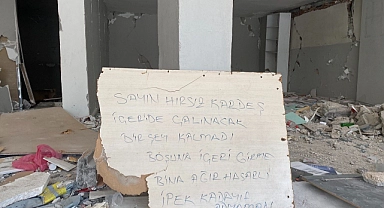 SAYIN HIRSIZ KARDEŞ
İÇERİDE ÇALINACAK
BİRŞEY KALMADI
BOŞUNA İÇERİ GİRME
BİNA AĞIR HASARLI
İPEK KADAYIF